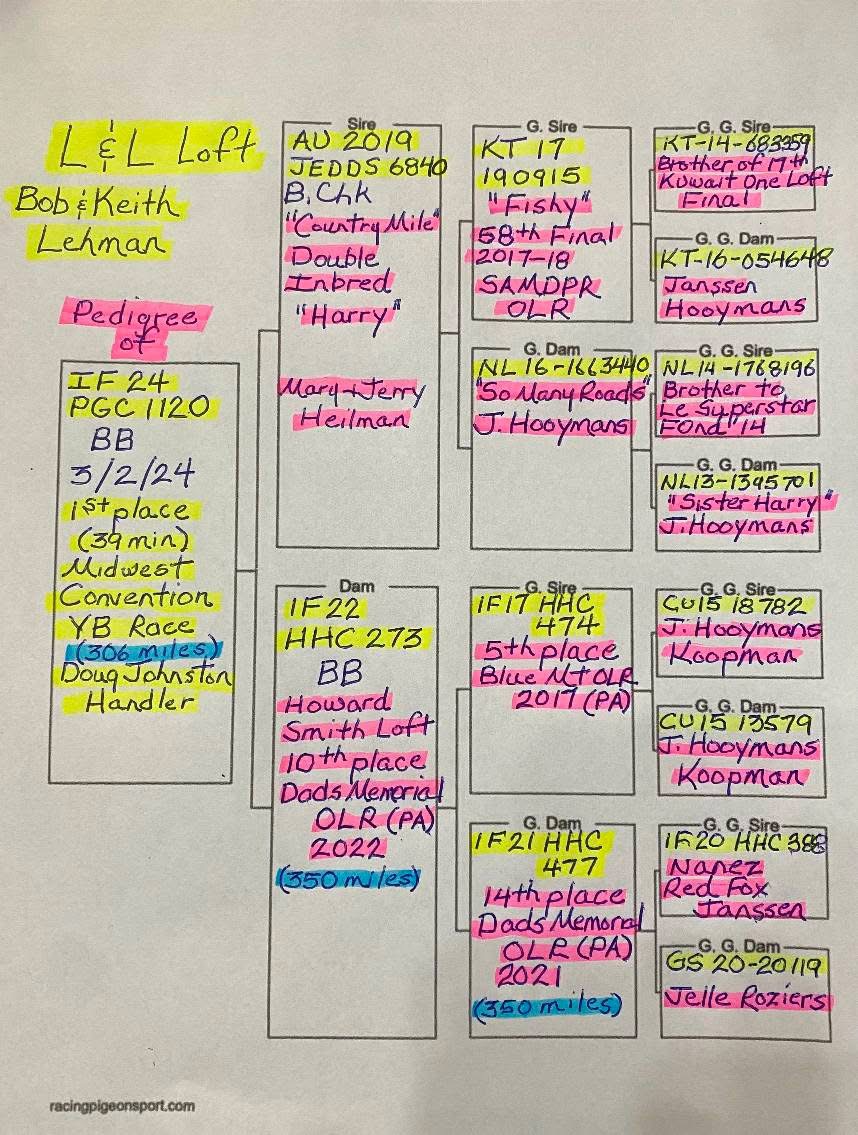 L & L Loft
Bob & Keith
Lehman
Pedigree
of
IF 24
PGC 1120
BB
3/2/24
1st place
(39 min)
Midwest
Convention
YB Race
(306 miles)
Doug Johnston
Handler
Sire
AU 2019
JEDDS 6840
B. Chk
"Country Mile"
Double
Inbred
"Harry"
Mary + Jerry
Heilman
Dam
IF 22
HHC 273
BB
Howard
Smith Loft
10th place
Dads Memorial
OLR (PA)
2022
(350 miles)
G. Sire
KT 17
190915
"Fishy"
58th Final
2017-18
SAMDPR
OLR
G. Dam
NL 16-1663440
"So Many Roads"
J. Hooymans
G. Sire
IF17 HHC
474
5th place
Blue Mt OLR
2017 (PA)
G. Dam
IF 21 HHC
477
14th place
Dads Memoral
OLR (PA)
2021
(350 miles)
G. G. Sire
KT-14-683359
Brother of 17th
Kuwait One Loft
Final
G. G. Dam
KT-16-054648
Janssen
Hooymans
G. G. Sire
NL14-1768196
Brother to
Le Superstar
FOnd "14
G. G. Dam
NL13-1395701
"Sister Harry"
J. Hooymans
G. G. Sire
CU15 18782
J. Hooymans
Koopman
G. G. Dam
CU15 13579
J. Hooymans
Koopman
G. G. Sire
IF 20 HHC 388
Nanez
Red Fox
Janssen
G. G. Dam
GS 20-20119
Jelle Roziers
racingpigeonsport.com